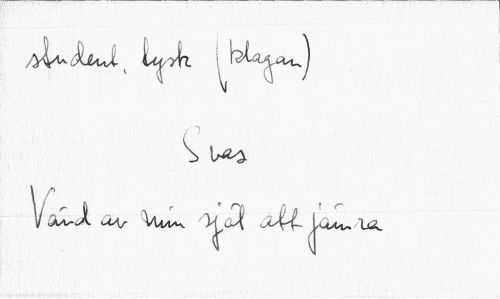 student, tysk (klagan)
Svas
Vänd av min själ att jämra